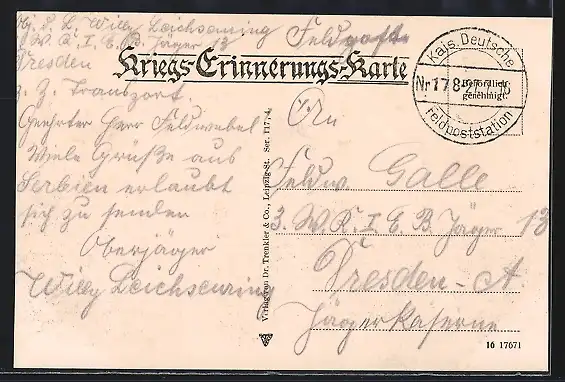 Willy Leichsenring
3. W. K. I. E. B. Jäger 13
Dresden
z. Z. Transport.
Geehrter Herr Feldwebel
Viele Grüße aus
Serbien erlaubt
sich zu senden
Oberjäger
Willy Leichsenring
Feldpost
Kriegs-Erinnerungs-Karte
Kais. Deutsche
Nr 178
Behördlich
genehmigt.
Feldpoststation
An
Feldw. Galle
3. W. K. I. E. B. Jäger 13
Dresden-A
Jägerkaserne
Verlag von Dr. Trenkler & Co., Leipzig-St. Ser. 1177,
16 17671